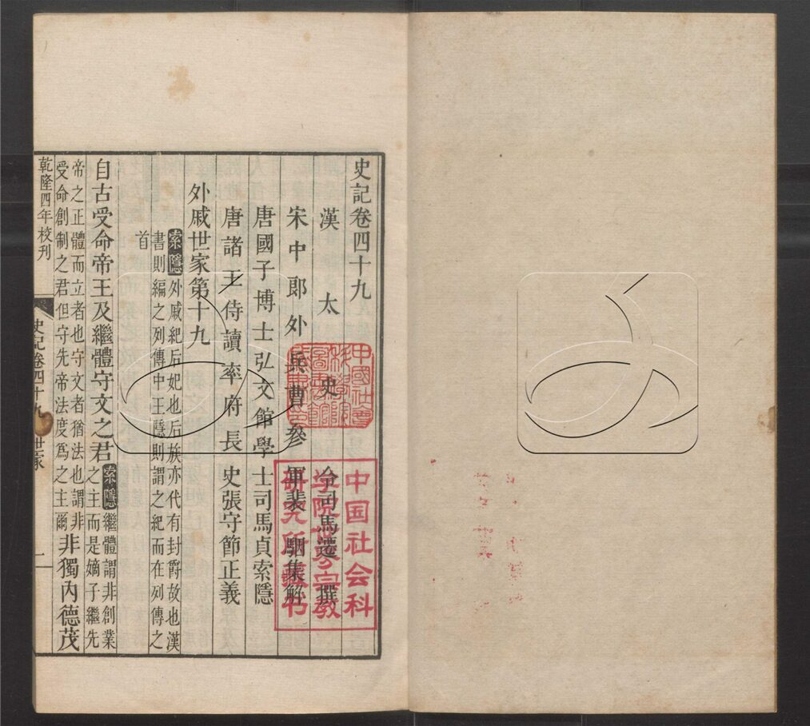 史記卷四十九
漢太史令司馬遷撰
宋中郎外兵曹參軍裴駰集解
唐國子博士弘文館學士司馬貞索隱
唐諸王侍讀率府長史張守節正義
外戚世家第十九
索隱外戚紀后妃也后族亦代有封爵故也漢
書則編之列傳中王隱則謂之紀而在列傳之
首
自古受命帝王及繼體守文之君
索隱繼體謂非創業
之主而是嫡子繼先
帝之正體而立者也守文者猶法也謂非
受命創制之君但守先帝法度爲之主爾
非獨內德茂
乾隆四年校刊
史記卷四十九
世家
一
中国社会科
学院世界宗教
研究所藏书